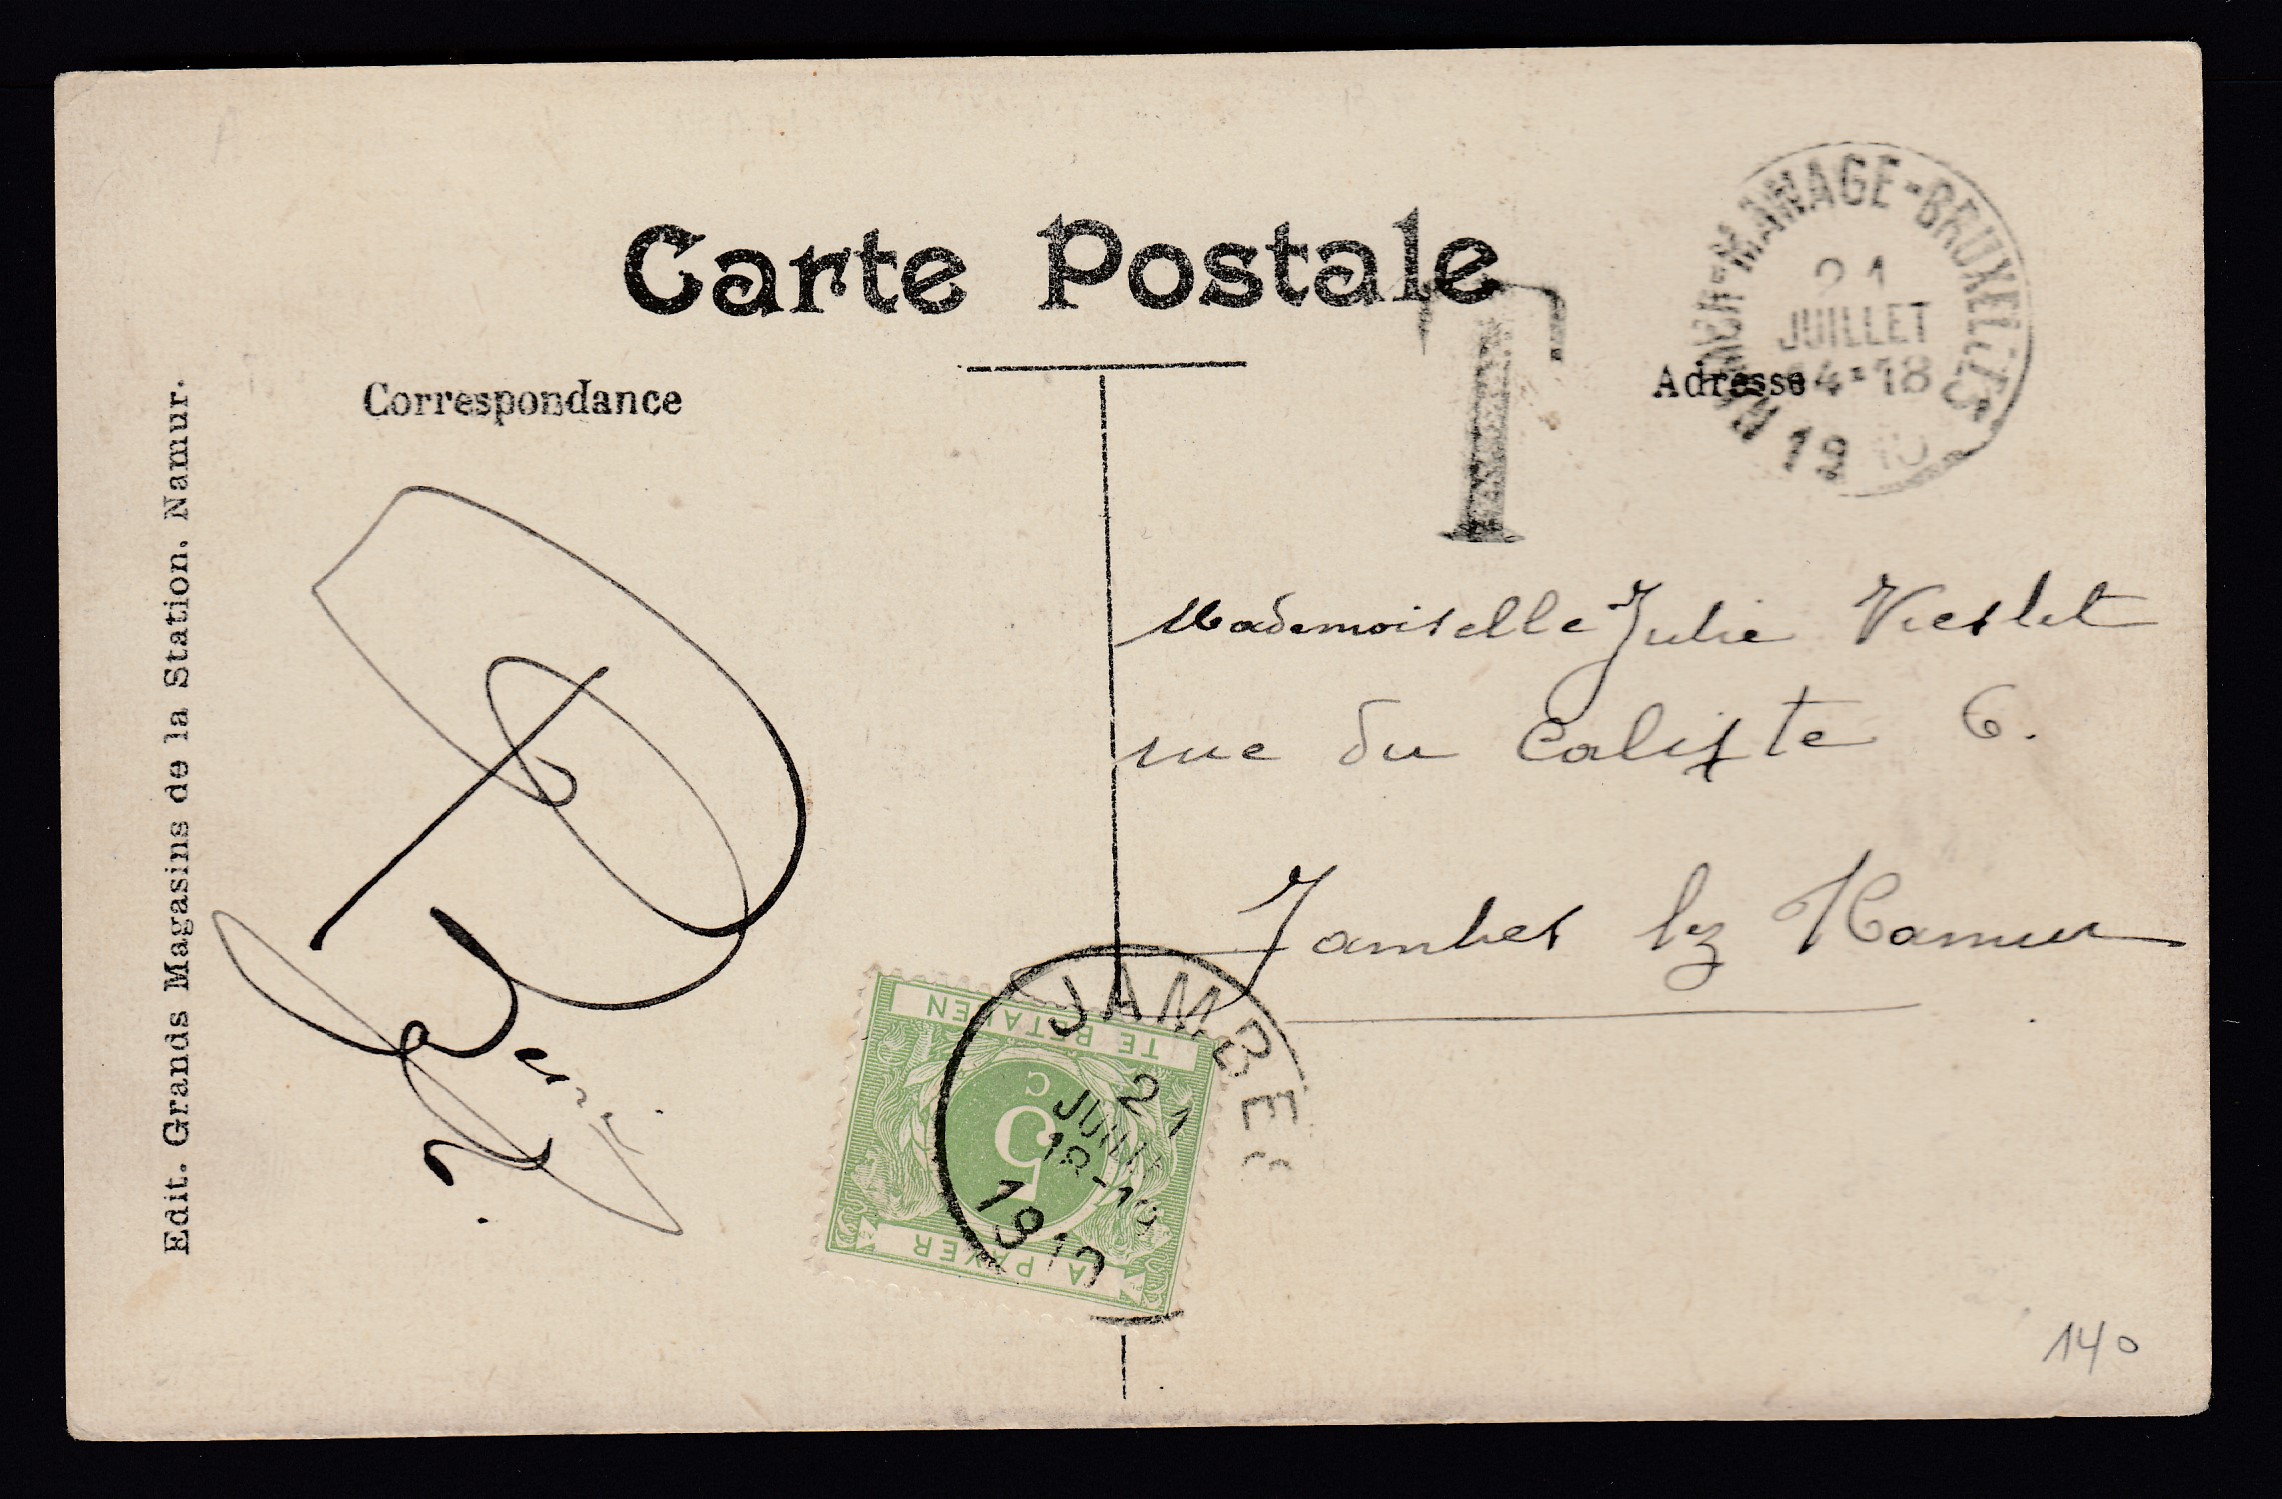 Carte Postale
Correspondance
Adresse
T
MANAGE-BRUXELLES
21
JUILLET
14-18
19 10
Edit. Grands Magasins de la Station, Namur.
Mademoiselle Julie Vieslet
rue du Caliste 6.
Jambes lez Namur
JAMBES
21
JUILLET
18-19
1910
TE BETALEN
5
C
A PAYER
140